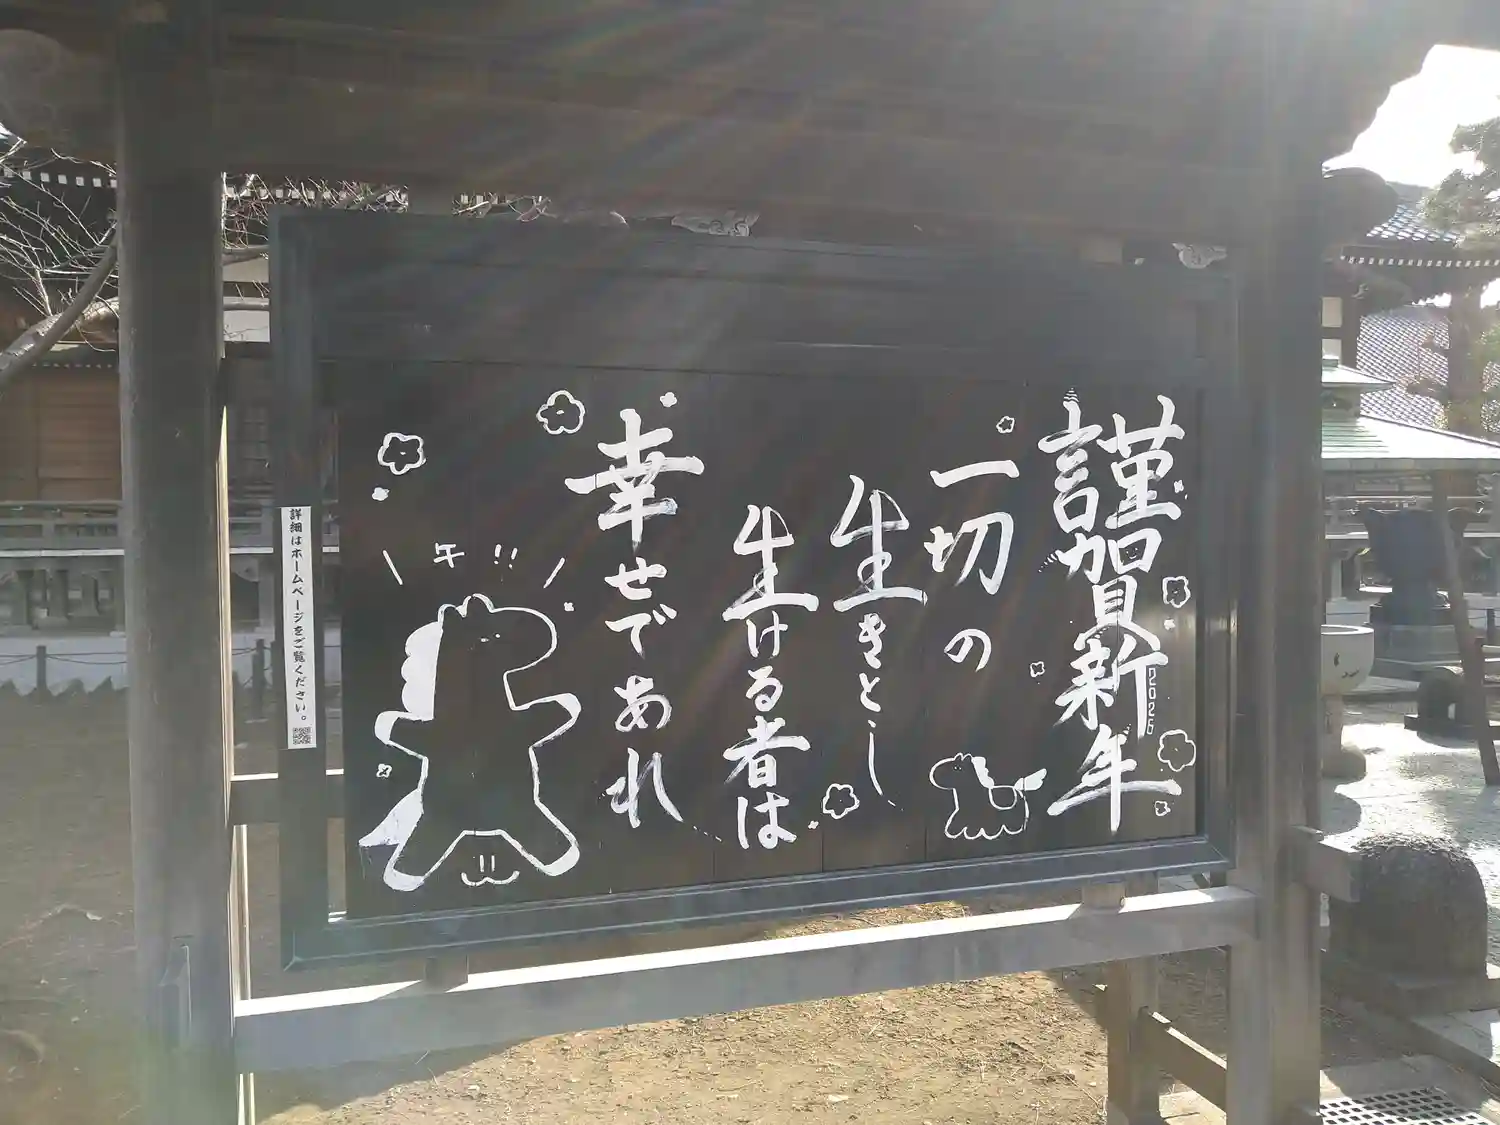 謹賀新年
2026
一切の
生きとし
生ける者は
幸せであれ
午!!
詳細はホームページをご覧ください。